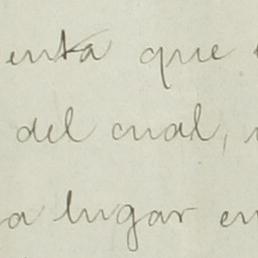 enta que
del cual,
a lugar en